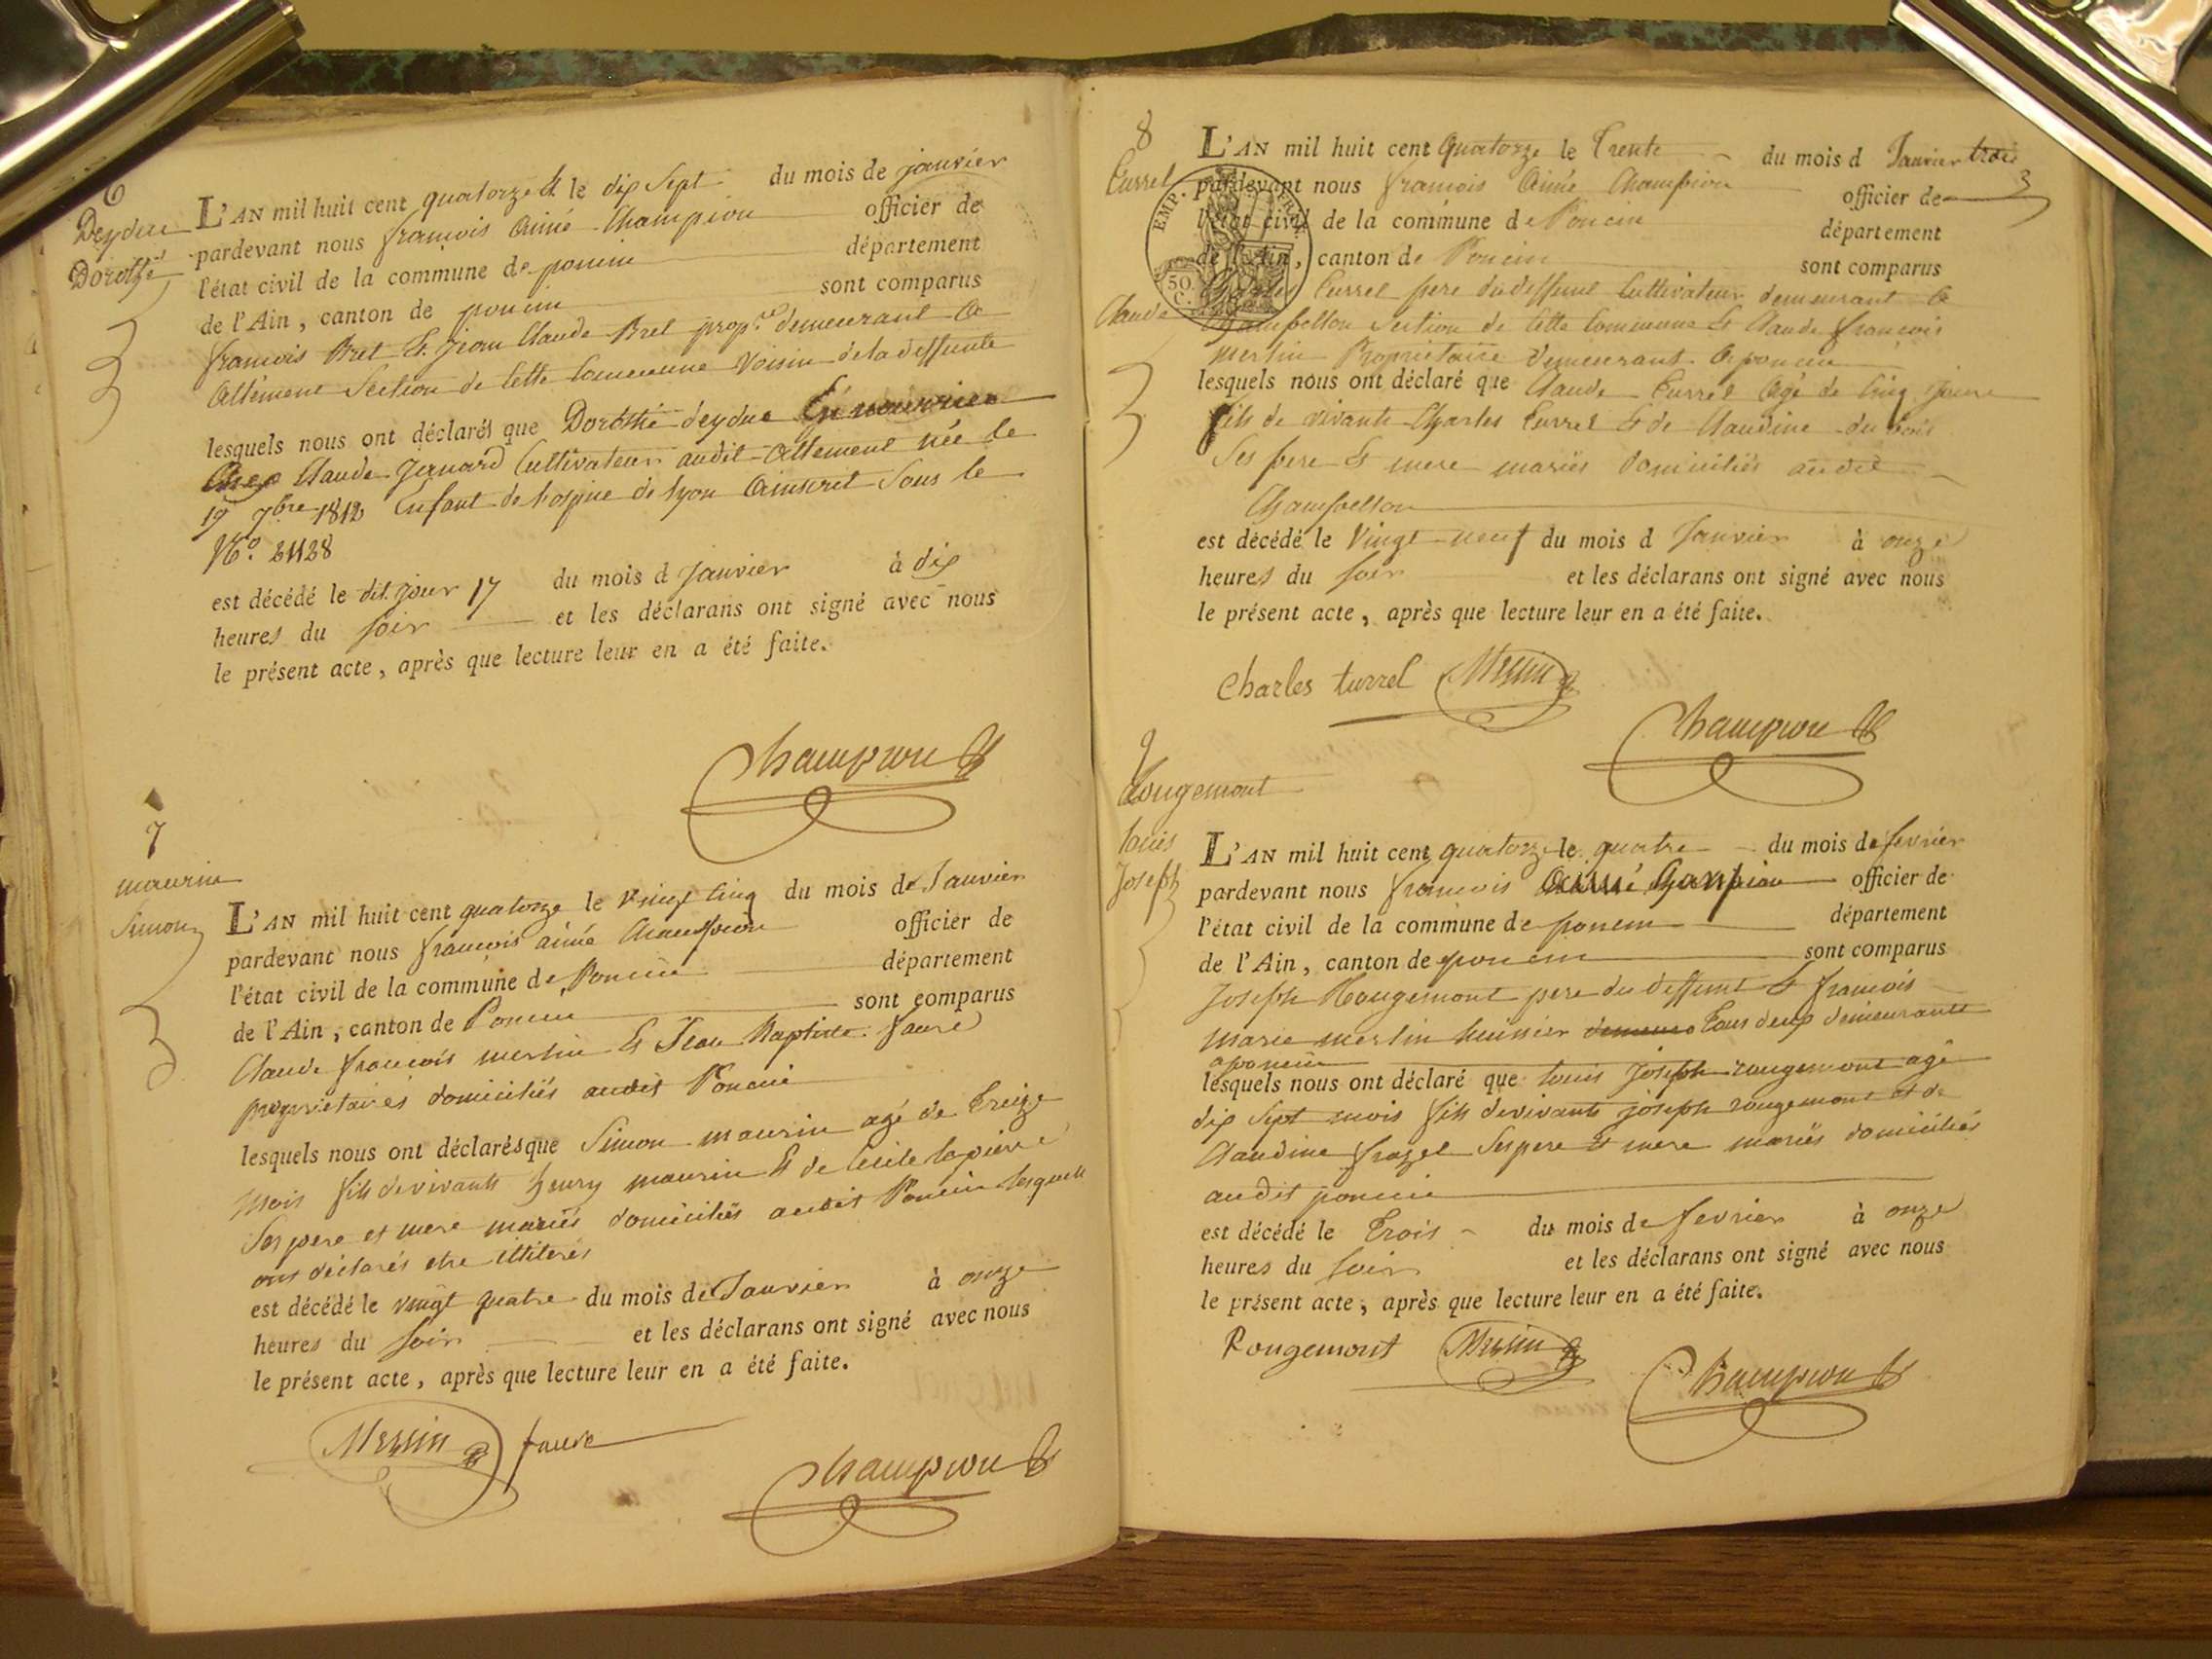 6
Deydue
Dorothé
L'AN mil huit cent quatorze & le dix sept du mois de janvier
pardevant nous françois Aimé Champion officier de
l'état civil de la commune de poncin département
de l'Ain, canton de poncin sont comparus
françois Bret & jean Claude Bret prop.re demeurant a
allement Section de Cette Commune Voisin de la deffunte
lesquels nous ont déclarés que Dorothé deydue En nourrice
Chez Claude Janard Cultivateur audit allement née le
19 7bre 1812 Enfant de l'ospice de lyon inscrit Sous le
N.o 21128
est décédé le dit jour 17 du mois d janvier à dix
heures du soir et les déclarans ont signé avec nous
le présent acte, après que lecture leur en a été faite.
Champion
7
maurin
Simon
L'AN mil huit cent quatorze le vingt cinq du mois de Janvier
pardevant nous françois aimé Champion officier de
l'état civil de la commune de Poncin département
de l'Ain, canton de Poncin sont comparus
Claude françois merlin & Jean Baptiste faure
propriétaires domiciliés audit Poncin
lesquels nous ont déclarés que Simon maurin agé de treize
mois fils de vivants henry maurin & de Cécile lapierre
Ses pere et mere mariés domiciliés audit Poncin lesquels
ont déclarés etre illiterés
est décédé le vingt quatre du mois de Janvier à onze
heures du soir et les déclarans ont signé avec nous
le présent acte, après que lecture leur en a été faite.
Merlin faure
Champion
8
Turrel
Claude
EMP. FRAN.
50 C.
L'AN mil huit cent Quatorze le Trente du mois d Janvier trois
pardevant nous françois Aimé Champion officier de
l'état civil de la commune de Poncin département
de l'Ain, canton de Poncin sont comparus
Charles Turrel pere du deffunt Cultivateur demeurant a
Champeillon Section de Cette Commune & Claude françois
merlin Propriétaire demeurant a poncin
lesquels nous ont déclaré que Claude Turrel Agé de Cinq jours
fils de vivants Charles Turrel & de Claudine dubois
Ses pere & mere mariés domiciliés audit
Champeillon
est décédé le Vingt neuf du mois d Janvier à onze
heures du soir et les déclarans ont signé avec nous
le présent acte, après que lecture leur en a été faite.
Charles turrel Merlin
Champion
9
Rougemont
louis
Joseph
L'AN mil huit cent quatorze le quatre du mois de fevrier
pardevant nous françois Aimé Champion officier de
l'état civil de la commune de poncin département
de l'Ain, canton de poncin sont comparus
Joseph Rougemont pere du deffunt & françois
marie merlin huissier demeura Tous deux demeurants
a poncin
lesquels nous ont déclaré que louis Joseph rougemont agé
dix Sept mois fils de vivants joseph rougemont et de
Claudine frazel Ses pere & mere mariés domiciliés
audit poncin
est décédé le Trois du mois de fevrier à onze
heures du soir et les déclarans ont signé avec nous
le présent acte, après que lecture leur en a été faite.
Rougemont Merlin
Champion